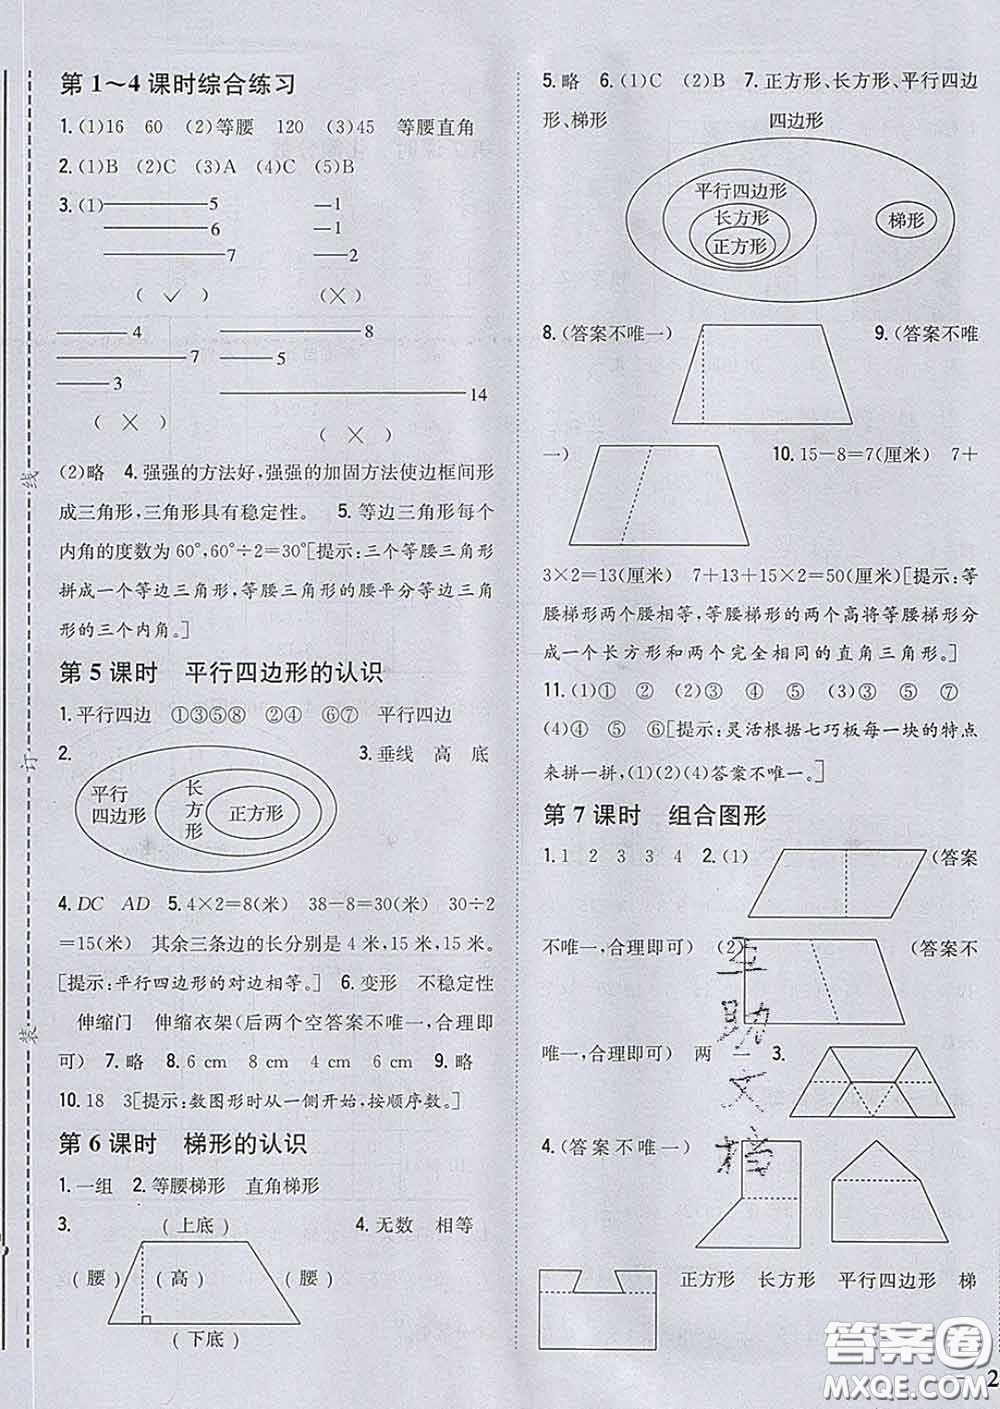 第1～4课时综合练习
1.(1)16 60 (2)等腰 120 (3)45 等腰直角
2.(1)B (2)C (3)A (4)C (5)B
3.(1) 5 1
6 1
7 2
( ✓ ) ( × )
4 8
7
3 14
( × ) ( × )
(2)略 4.强强的方法好,强强的加固方法使边框间形
成三角形,三角形具有稳定性。 5.等边三角形每个
内角的度数为60°,60°÷2=30°[提示:三个等腰三角形
拼成一个等边三角形,等腰三角形的腰平分等边三角
形的三个内角。]
第5课时 平行四边形的认识
1.平行四边 ①③⑤⑧ ②④ ⑥⑦ 平行四边
2. 平行四边形 长方形 正方形 3.垂线 高 底
4.DC AD 5.4×2=8(米) 38-8=30(米) 30÷2
=15(米) 其余三条边的长分别是4米,15米,15米。
[提示:平行四边形的对边相等。] 6.变形 不稳定性
伸缩门 伸缩衣架(后两个空答案不唯一,合理即
可) 7.略 8.6 cm 8 cm 4 cm 6 cm 9.略
10.18 3[提示:数图形时从一侧开始,按顺序数。]
第6课时 梯形的认识
1.一组 2.等腰梯形 直角梯形
3. (上底) 4.无数 相等
(腰) (高) (腰)
(下底)
5.略 6.(1)C (2)B 7.正方形、长方形、平行四边
形、梯形 四边形
平行四边形
长方形 梯形
正方形
8.(答案不唯一) 9.(答案不唯
一) 10.15-8=7(厘米) 7+
3×2=13(厘米) 7+13+15×2=50(厘米)[提示:等
腰梯形两个腰相等,等腰梯形的两个高将等腰梯形分
成一个长方形和两个完全相同的直角三角形。]
11.(1)① ① ② (2)④ ⑥ (3)④ ⑤ ⑦
(4)④ ⑤ ⑥[提示:灵活根据七巧板每一块的特点
来拼一拼,(1)(2)(4)答案不唯一。]
第7课时 组合图形
1.1 2 3 3 4 2.(1) (答案
不唯一,合理即可) (2) (答案不
唯一,合理即可) 两 一 3.
4.(答案不唯一)
正方形 长方形 平行四边形 梯
线
订
装
答案圈
MXQE.COM
2